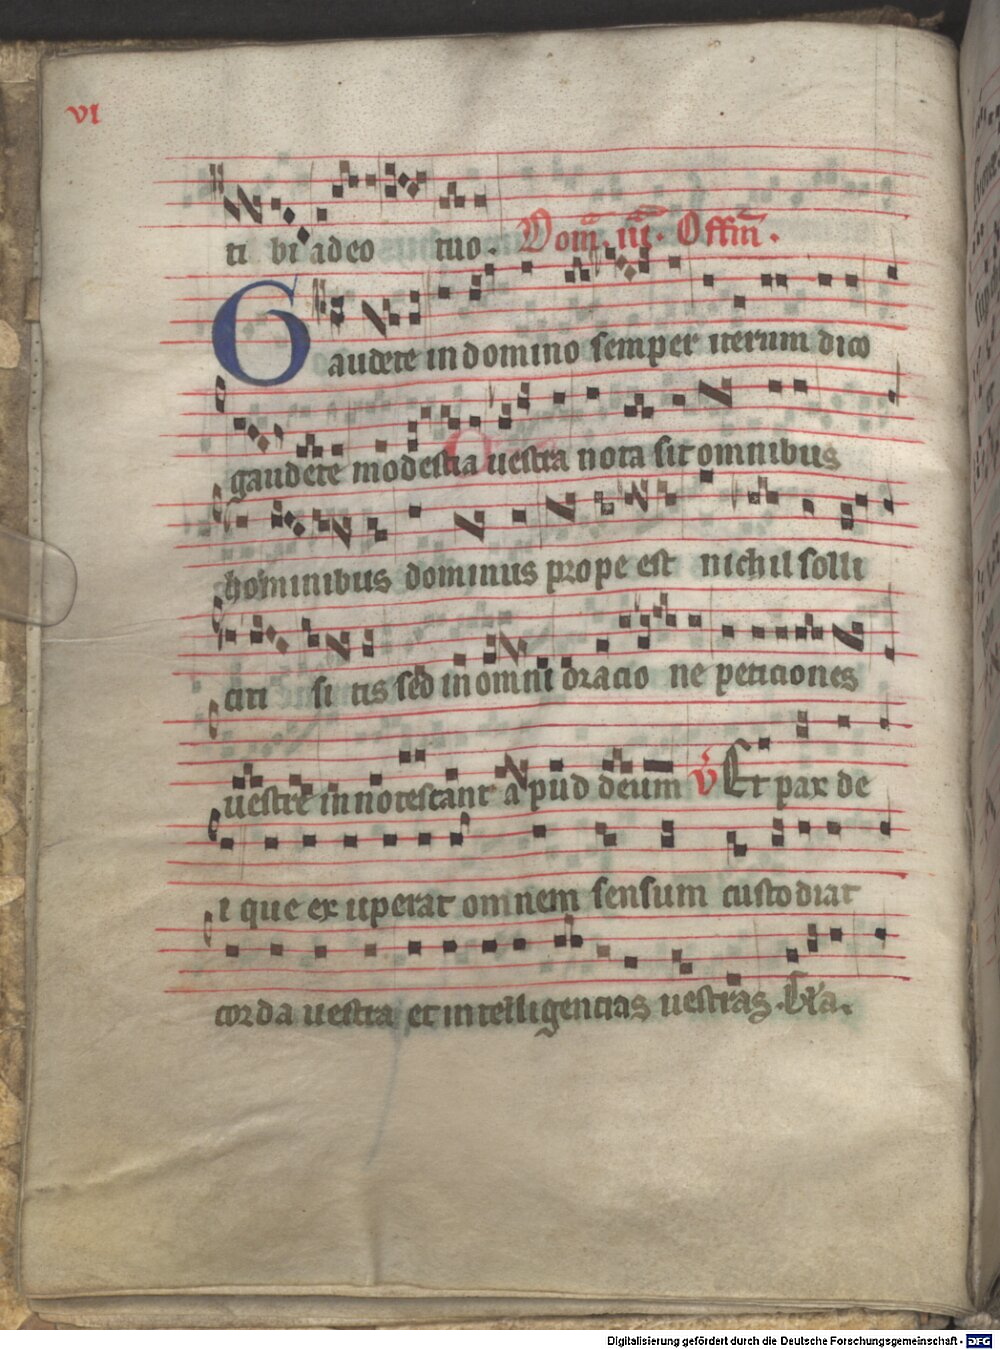 vi
ti bi a deo tuo. Dom̄. iii. Offm̄.
Gaudete in domino semper iterum dico
gaudete modestia uestra nota sit omnibus
hominibus dominus prope est nichil solli
citi si tis sed in omni oracio ne peticiones
uestre in notescant a pud deum V̓ Et pax de
i que ex uperat omnem sensum custodiat
corda uestra et in telligencias uestras.
Digitalisierung gefördert durch die Deutsche Forschungsgemeinschaft - DFG